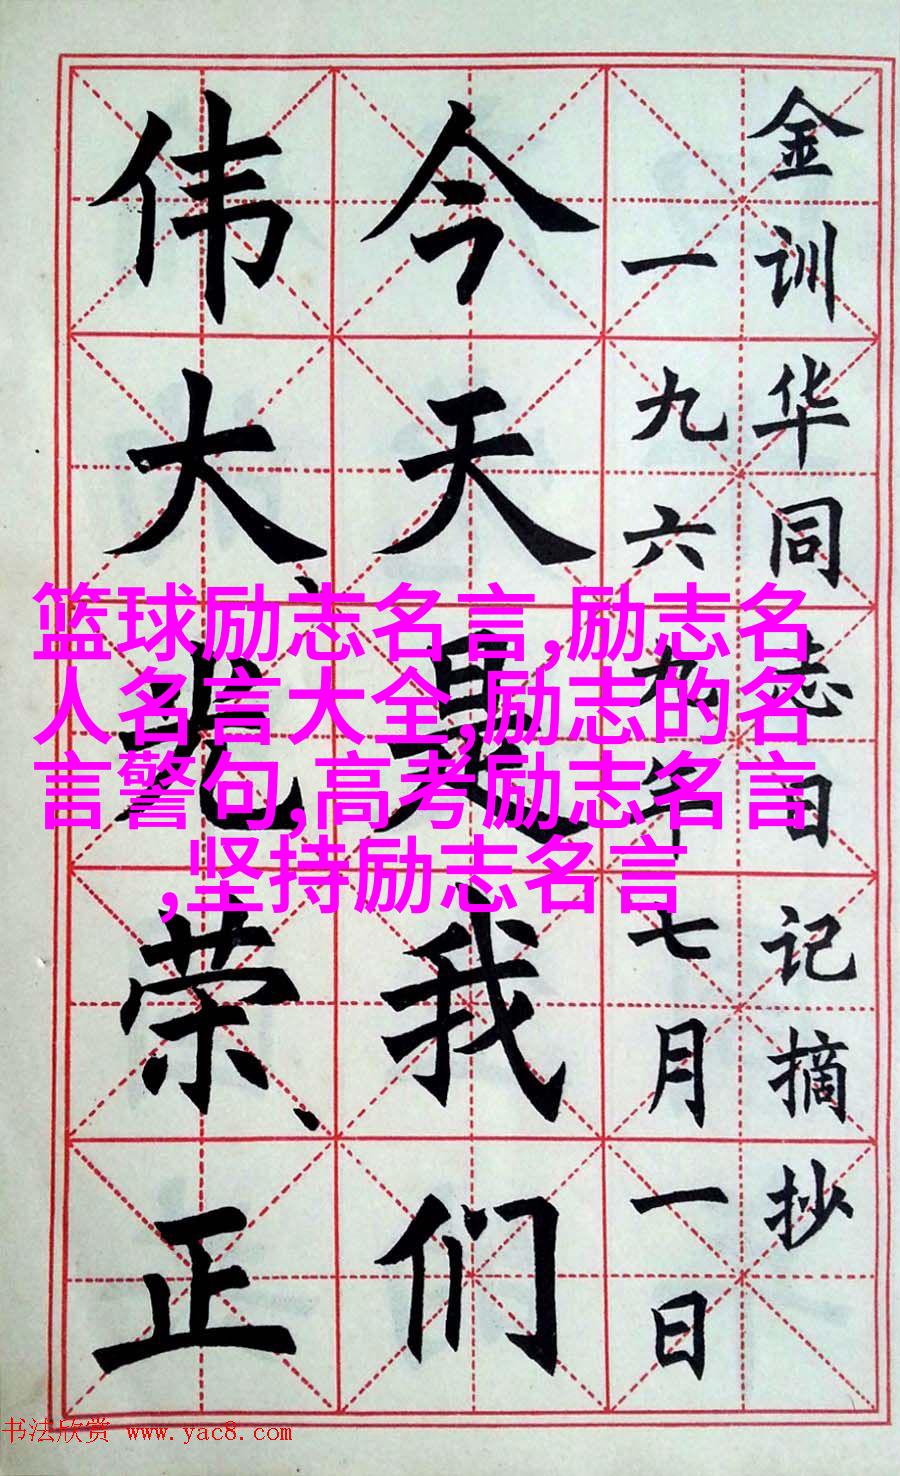 金训华同志日记摘抄
一九六九年七月一日
今天是我们
伟大、光荣、正
篮球励志名言,励志名
人名言大全,励志的名
言警句,高考励志名言
,坚持励志名言
书法欣赏 www.yac8.com